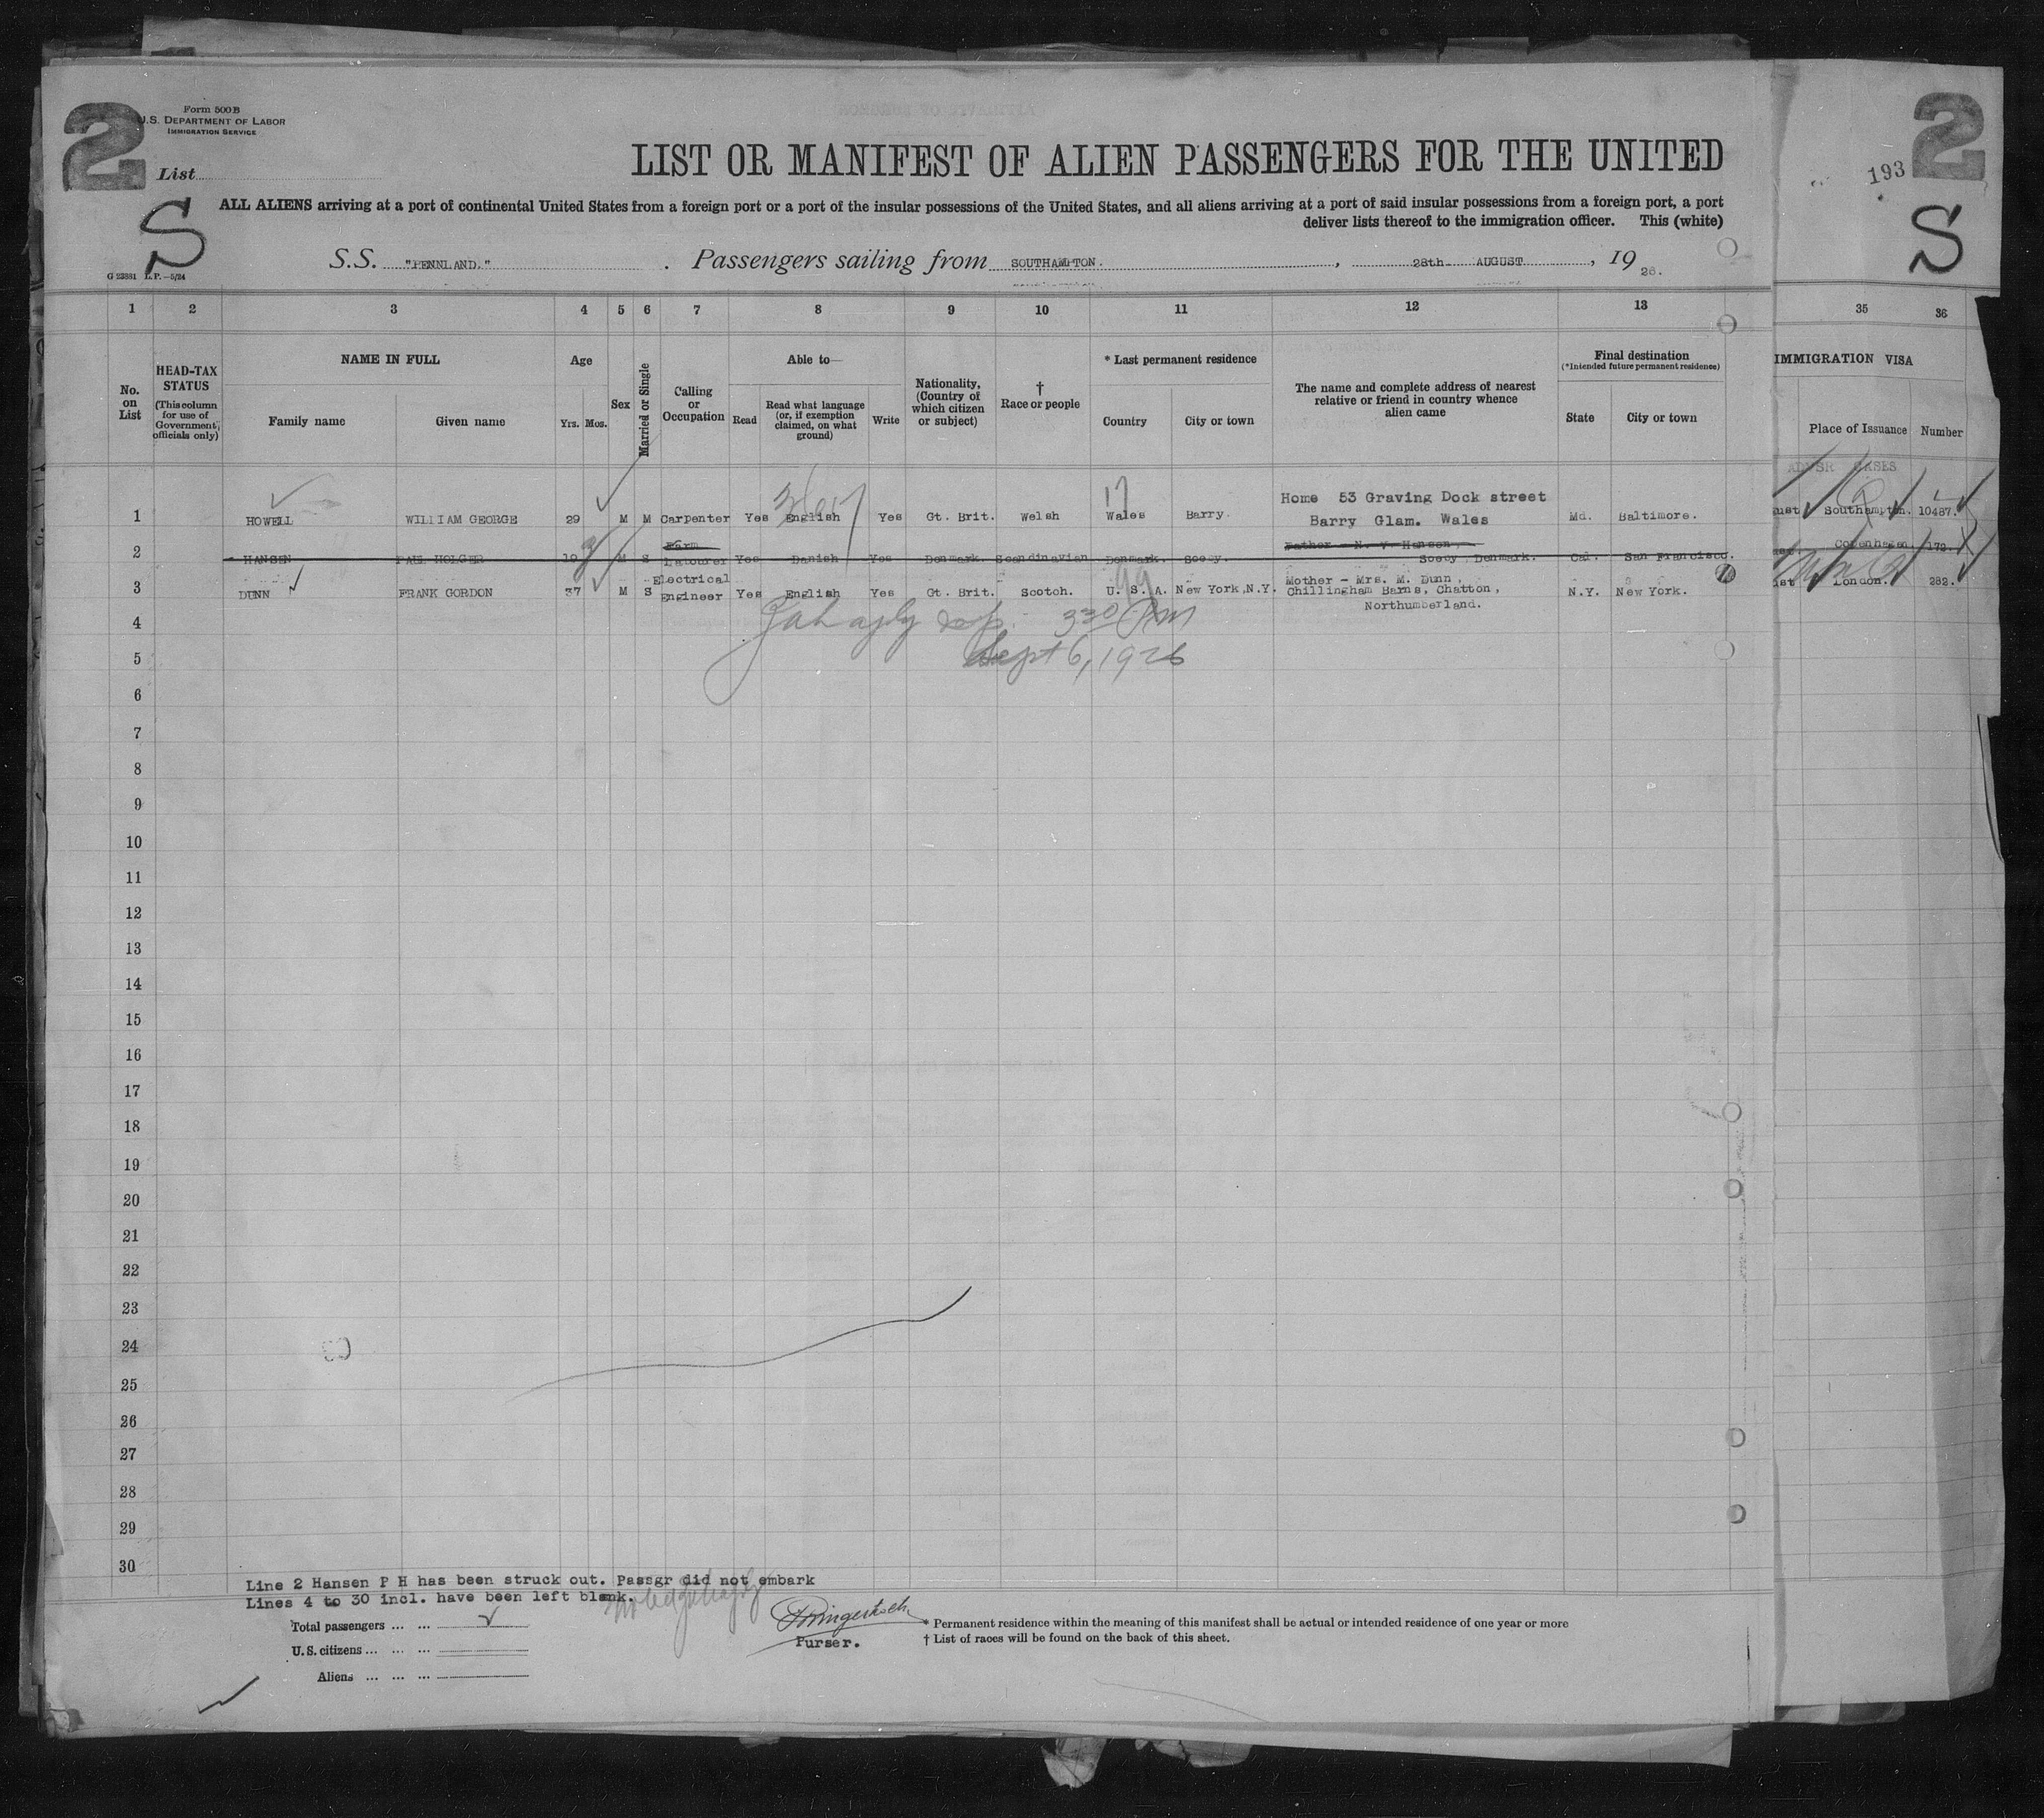 2
Form 500 B
U.S. DEPARTMENT OF LABOR
IMMIGRATION SERVICE
List
S
G 23881 L.P.—5/24
LIST OR MANIFEST OF ALIEN PASSENGERS FOR THE UNITED
ALL ALIENS arriving at a port of continental United States from a foreign port or a port of the insular possessions of the United States, and all aliens arriving at a port of said insular possessions from a foreign port, a port
deliver lists thereof to the immigration officer. This (white)
S.S. "PENNLAND." . Passengers sailing from SOUTHAMPTON. , 28th AUGUST , 19 26.
193
2
S
1 2 3 4 5 6 7 8 9 10 11 12 13 35 36
No. on List
HEAD-TAX STATUS
(This column for use of Government officials only)
NAME IN FULL
Family name Given name
Age
Yrs. Mos.
Sex
Married or Single
Calling or Occupation
Able to—
Read Read what language (or, if exemption claimed, on what ground) Write
Nationality, (Country of which citizen or subject)
† Race or people
* Last permanent residence
Country City or town
The name and complete address of nearest relative or friend in country whence alien came
Final destination
(*Intended future permanent residence)
State City or town
IMMIGRATION VISA
Place of Issuance Number
CASES
Home 53 Graving Dock street
1 HOWELL WILLIAM GEORGE 29 M M Carpenter Yes English Yes Gt. Brit. Welsh Wales Barry. Barry Glam. Wales Md. Baltimore. Southampton. 10487.
Farm Father - N. V. Hansen,
2 HANSEN PAUL HOLGER 19 M S Labourer Yes Danish Yes Denmark. Scandinavian Denmark. Soeby. Soeby Denmark. Cal. San Francisco. Copenhagen. 172.
Electrical Mother - Mrs. M. Dunn,
3 DUNN FRANK GORDON 37 M S Engineer Yes English Yes Gt. Brit. Scotch. U. S. A. New York, N.Y. Chillingham Barns, Chatton, N.Y. New York. London. 282.
Northumberland.
4
3 30 PM
5
Sept 6, 1926
6
7
8
9
10
11
12
13
14
15
16
17
18
19
20
21
22
23
24
25
26
27
28
29
30
Line 2 Hansen P H has been struck out. Passgr did not embark
Lines 4 to 30 incl. have been left blank.
Total passengers ... ...
U.S. citizens ... ... ...
Aliens ... ... ...
Purser.
* Permanent residence within the meaning of this manifest shall be actual or intended residence of one year or more
† List of races will be found on the back of this sheet.